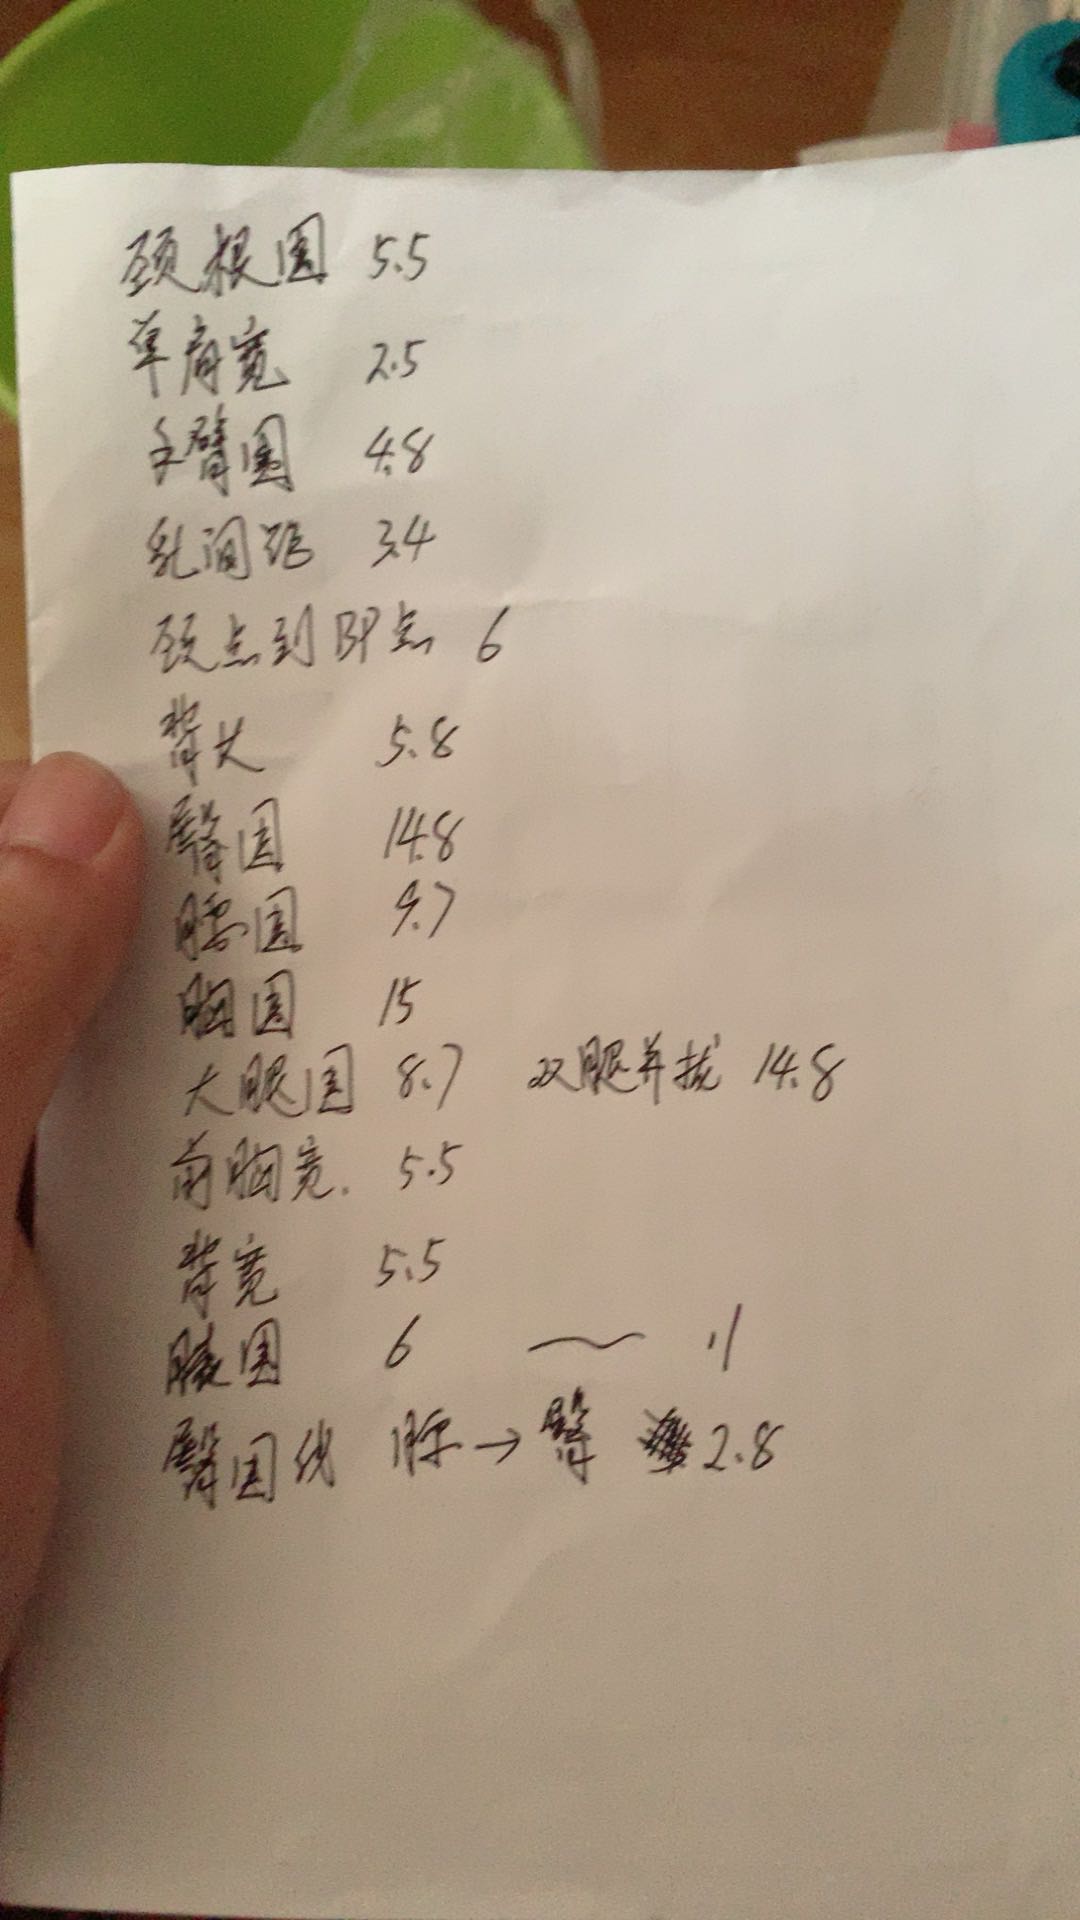 颈根围 5.5
单肩宽 2.5
手臂围 4.8
乳间距 3.4
颈点到BP点 6
背长 5.8
臀围 14.8
腰围 9.7
胸围 15
大腿围 8.7 双腿并拢 14.8
前胸宽. 5.5
背宽 5.5
膝围 6 ～ 11
臀围线 腰→臀 2.8